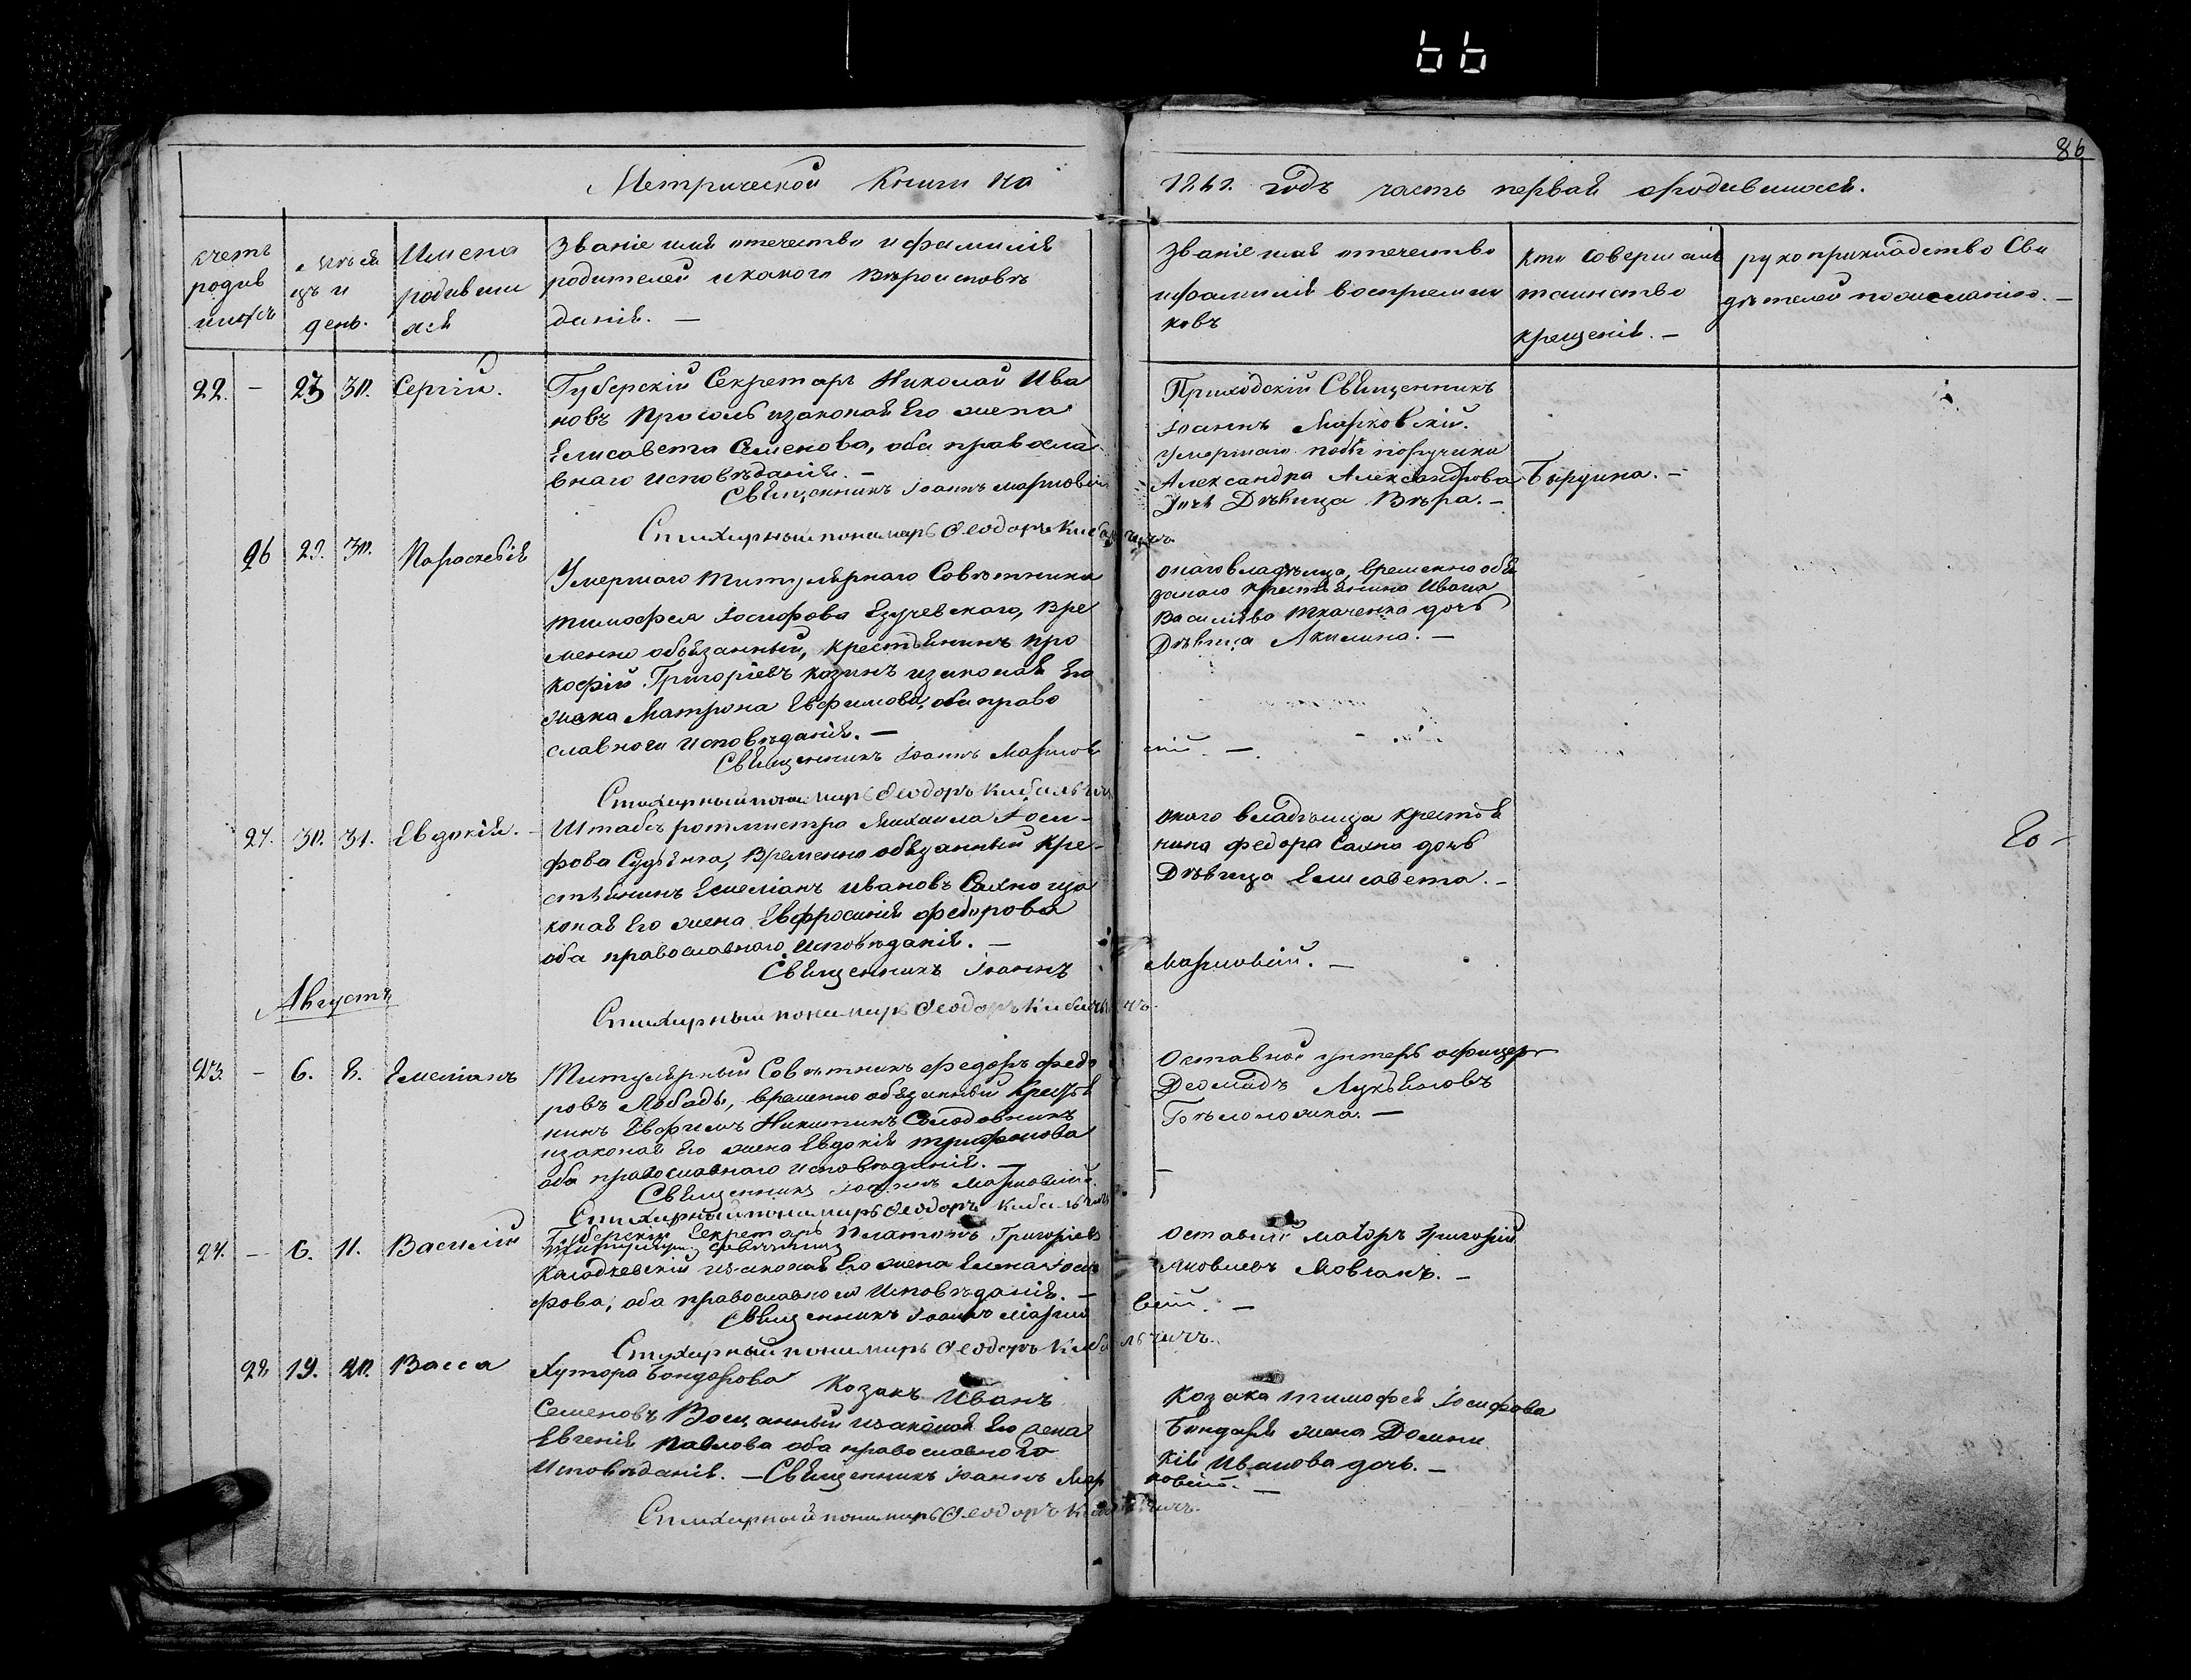 86
Метрической Книги на 1861. годъ часть первая о родившихся.
счетъ родив шихся
мѣся цъ и день.
Имена родивши хся
Званіе имя отечество и фамилія
родителей и какого Вѣроисповѣ
данія. —
Званіе имя отечество
и фамилія воспреемни
ковъ
кто совершалъ
таинство
крещенія. —
рукоприкладство Сви
дѣтелей по желанію. —
22. — 23 30. Сергій.
Губерскій Секретарь Николай Ива
новъ Просоль изаконая Его жена
Елисавета Семенова, оба правосла
внаго исповѣданія. —
Священникъ Іоаннъ Марковскій
Стихарный пономарь Феодоръ Кибальчичъ.
Приходскій Священникъ
Іоаннъ Марковскій.
умершаго подъ поручика
Александра Александрова Бардина. —
Дочь Дѣвица Вѣра. —
26 29. 30. Параскевія
Умершаго титулярнаго Совѣтника
тимофея Іосифова Езучевскаго, Вре
менно обязанный, крестьянинъ про
кофій Григоріевъ козинъ изаконая Его
жена Матрона Евфимова, оба право
славного исповѣданія. —
Священникъ Іоаннъ Марковскій. —
Стихарный пономарь Феодоръ Кибальчичъ
онаго владѣльца, временно обя
занаго крестьянина Ивана
Васильева ткаченка дочь
Дѣвица Акилина. —
27. 30. 31. Евдокія. —
Штабсъ ротмистра Михаила Іоси-
фова Судьенка, Временно обязанный Кре-
стьянинъ Емеліанъ Ивановъ Сахно иза
коная Его жена Евфросинія федорова
оба православнаго Исповѣданія. —
Священникъ Іоаннъ Марковскій. —
Стихарный пономарь Феодоръ Кибальчичъ.
онаго владѣльца крестья
нина федора Сахна дочь
Дѣвица Елисавета. —
Августъ
23. — 6. 8. Емеліанъ
Титулярный Совѣтникъ федоръ федо
ровъ Лобада, временно обязанный Крестья
нинъ Евфимъ Никитинъ Солодовникъ
изаконая Его жена Евдокія трифонова
оба православнаго исповѣданія. —
Священникъ Іоаннъ Марковскій.
Стихарный пономарь Феодоръ Кибальчичъ
Оставной унтеръ офицеръ
Деомидъ Лукьяновъ
24. — 6. 11. Василій
Губерскій Секретарь Платонъ Григоріевъ
Колодкевскій изаконая Его жена Елена Іоси
фова, оба православного Исповѣданія. —
Священникъ Іоаннъ Марковскій. —
Стихарный пономарь Феодоръ Кибальчичъ.
Оставной маіоръ Григорій
Яковлевъ Мовчанъ. —
28 19. 20. Васса
Хутора Бондарова Козакъ Иванъ
Семеновъ Вощанный изаконая Его жена
Евгенія Павлова оба православного
Исповѣданія. — Священникъ Іоаннъ Марковскій. —
Стихарный пономарь Феодоръ Кибальчичъ.
Козака тимофея Іосифова
Бондаря жена Домни
кія Иванова дочь. —